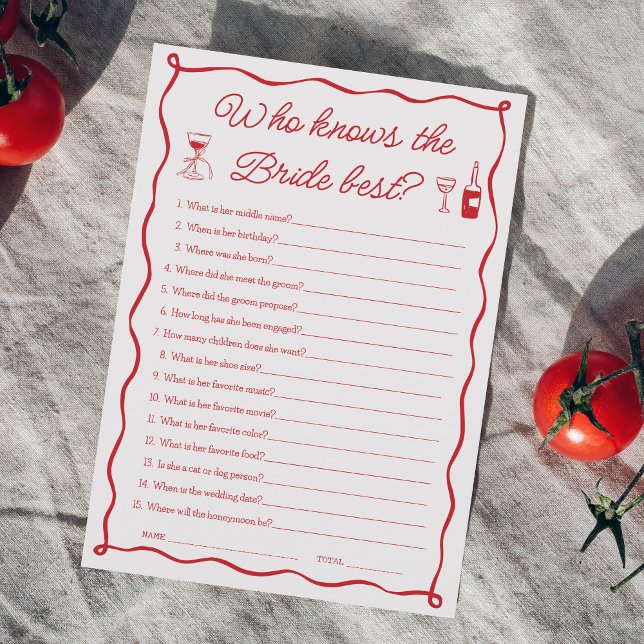 Who knows the
Bride best?
1. What is her middle name?
2. When is her birthday?
3. Where was she born?
4. Where did she meet the groom?
5. Where did the groom propose?
6. How long has she been engaged?
7. How many children does she want?
8. What is her shoe size?
9. What is her favorite music?
10. What is her favorite movie?
11. What is her favorite color?
12. What is her favorite food?
13. Is she a cat or dog person?
14. When is the wedding date?
15. Where will the honeymoon be?
NAME TOTAL